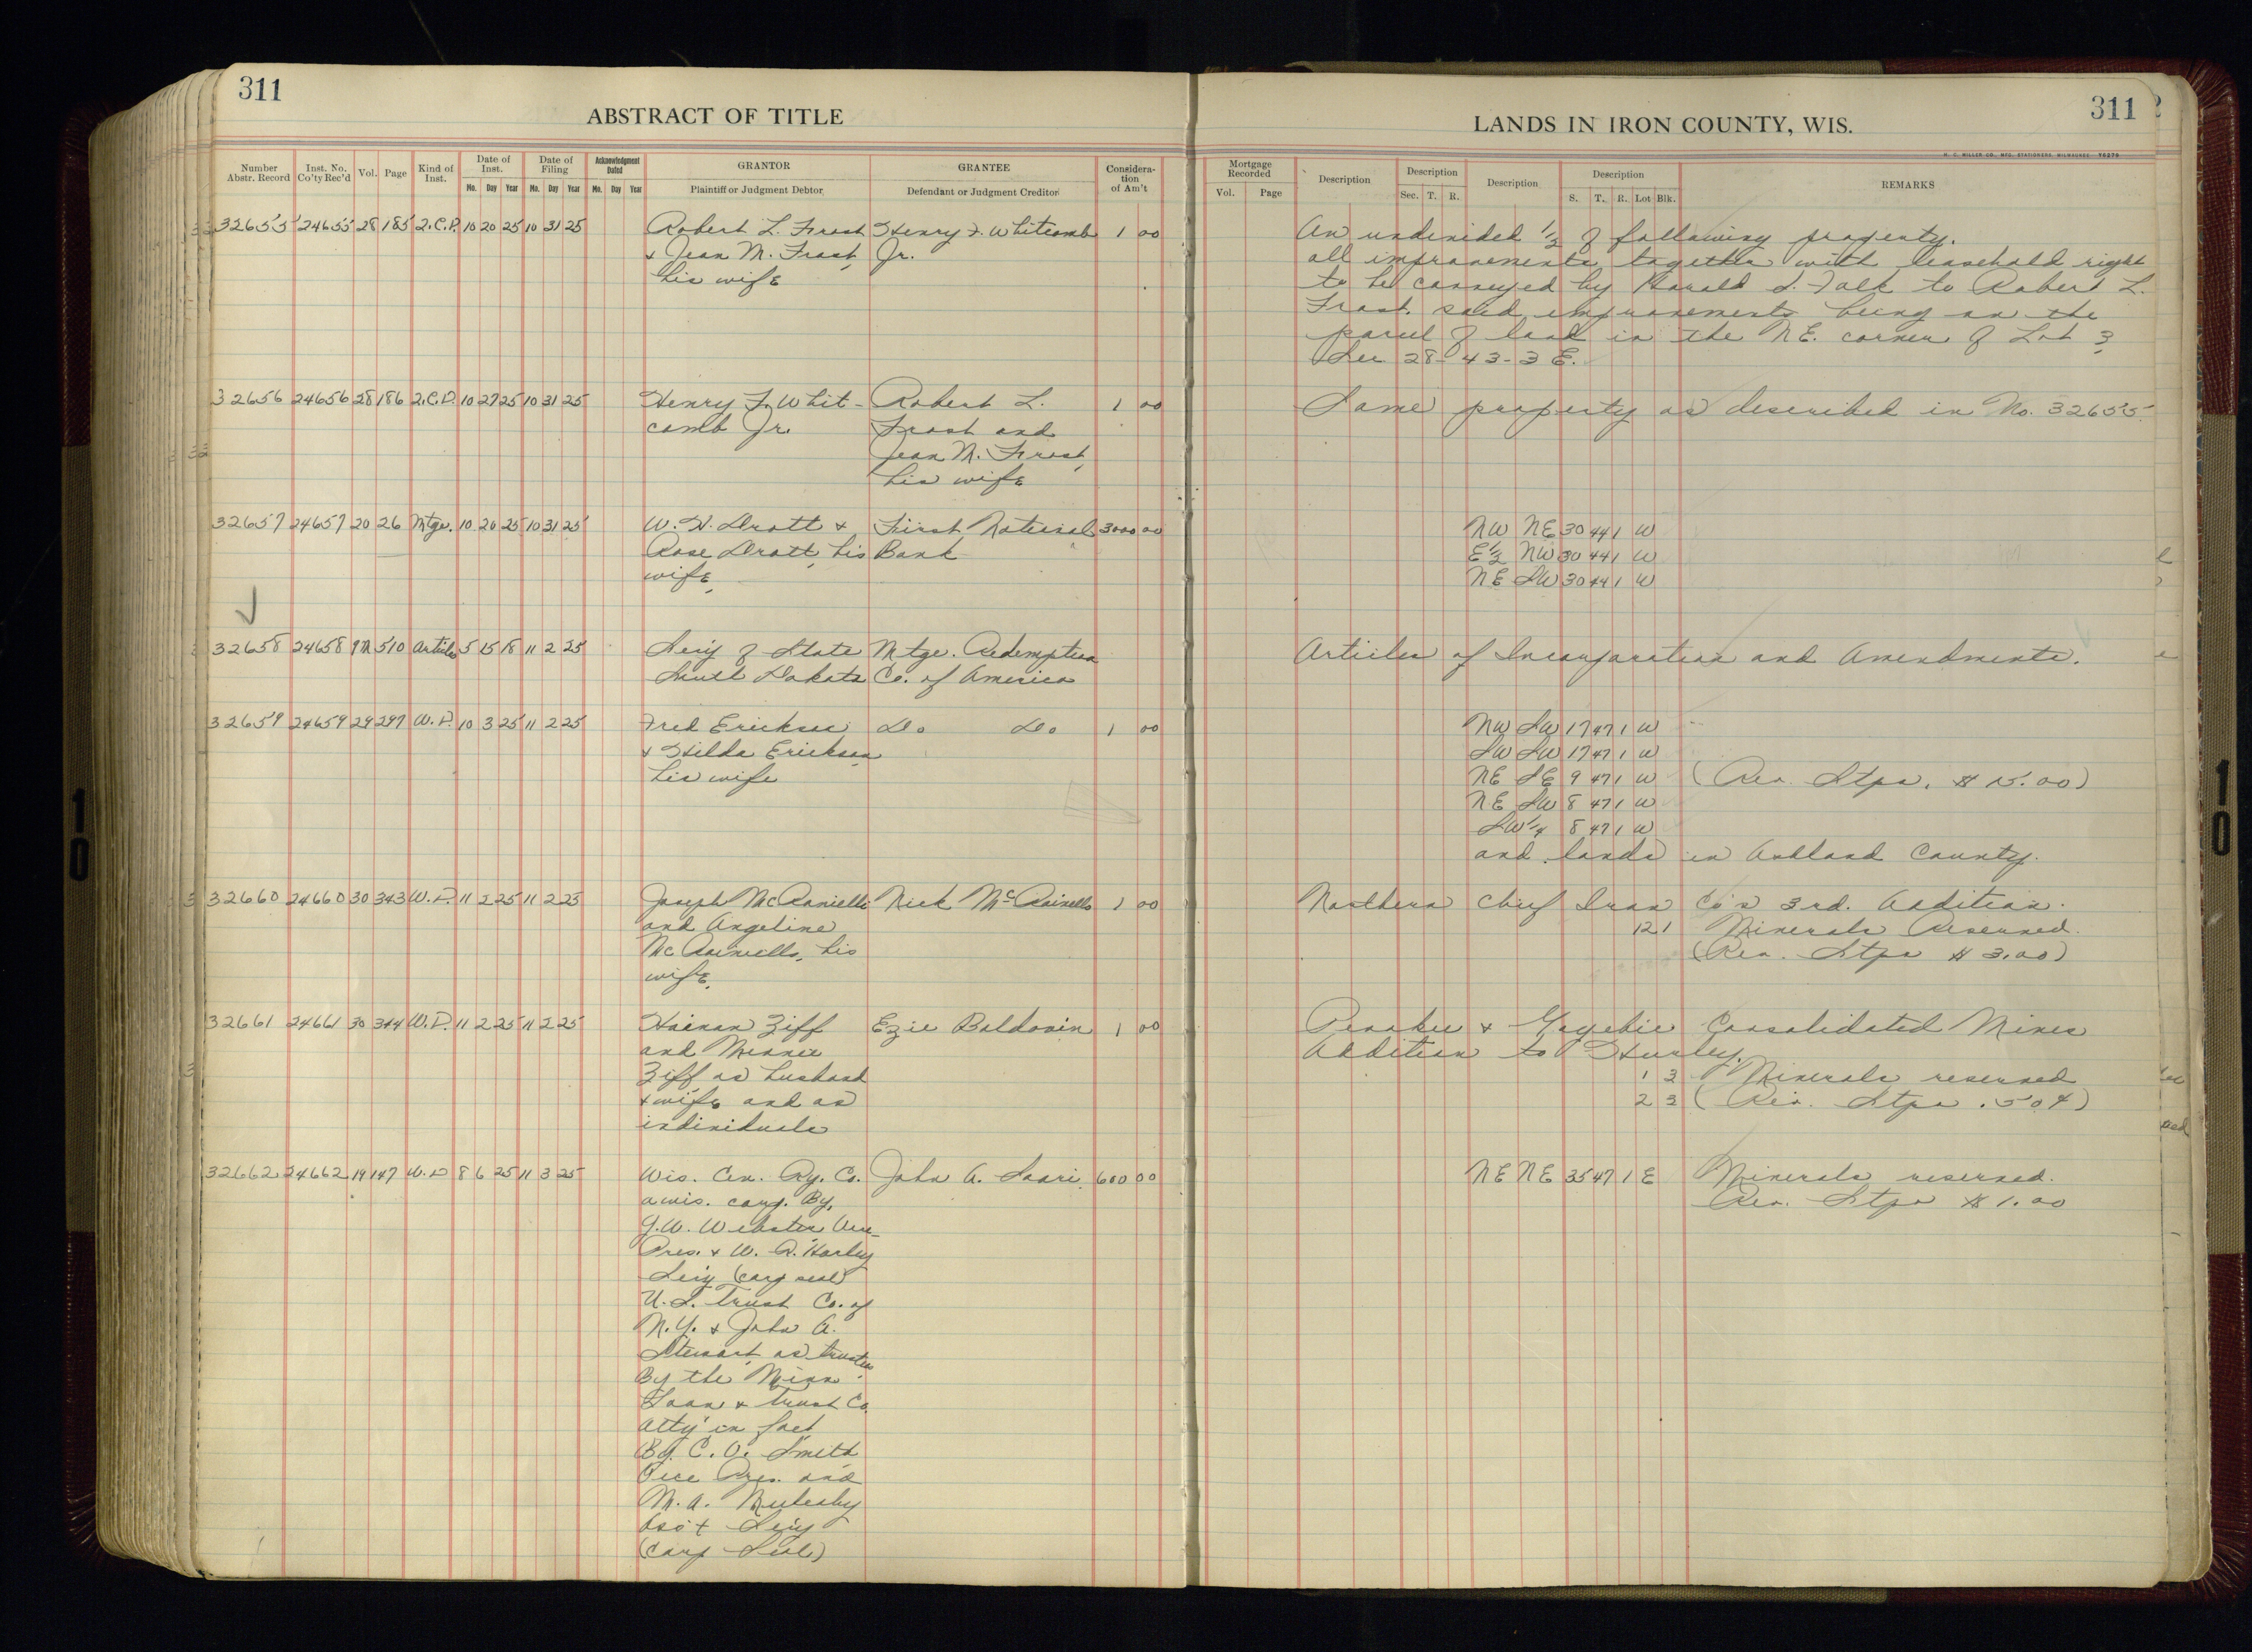 311
ABSTRACT OF TITLE
Number Abstr. Record
Inst. No. Co'ty Rec'd
Vol.
Page
Kind of Inst.
Date of Inst.
Mo. Day Year
Date of Filing
Mo. Day Year
Acknowledgment Dated
Mo. Day Year
GRANTOR
Plaintiff or Judgment Debtor
GRANTEE
Defendant or Judgment Creditor
Consideration of Am't
311
LANDS IN IRON COUNTY, WIS.
H. C. MILLER CO., MFG. STATIONERS, MILWAUKEE Y6270
Mortgage Recorded
Vol. Page
Description
Description
Sec. T. R.
Description
Description
S. T. R. Lot Blk.
REMARKS
32655 24655 28 185 2.C.D. 10 20 25 10 31 25 Robert L. Frost Henry F. Whitcomb 1 00 An undivided 1/2 of following property.
& Jean M. Frost, Jr. all improvements together with leasehold right
his wife to be conveyed by Harold S. Falk to Robert L.
Frost, said improvements being on the
parcel of land in the NE. corner of Lot 3,
Sec 28-43-3 E.
32656 24656 28 186 2.C.D. 10 27 25 10 31 25 Henry F. Whit- Robert L. 1 00 Same property as described in No. 32655
comb Jr. Frost and
Jean M. Frost,
his wife
32657 24657 20 26 Mtge. 10 20 25 10 31 25 W. H. Dratt & First National 3000 00 NW NE 30 44 1 W
Rose Dratt, his Bank E½ NW 30 44 1 W
wife, NE SW 30 44 1 W
32658 24658 9M 510 Articles 5 15 18 11 2 25 Sec'y of State Mtge. Redemption Articles of Incorporation and Amendments.
South Dakota Co. of America
32659 24659 29 297 W.D. 10 3 25 11 2 25 Fred Erickson Do Do 1 00 NW SW 17 47 1 W
& Hilda Erickson, SW SW 17 47 1 W
his wife NE SE 9 47 1 W (Rev. Stps. $15.00)
NE SW 8 47 1 W
SW¼ 8 47 1 W
and lands in Ashland County.
32660 24660 30 343 W.D. 11 2 25 11 2 25 Joseph Nick 1 00 Northern Chief Iron Co's 3rd. Addition.
and Angeline 12 1 Minerals Reserved.
his (Rev. Stps $3.00)
wife,
32661 24661 30 344 W.D. 11 2 25 11 2 25 Hainan Ziff Ezie Baldovin 1 00 Penokee & Gogebic Consolidated Mines
and Minnie Addition to Hurley.
Ziff as husband 1 3 Minerals reserved
& wife and as 2 3 (Rev. Stps .50¢)
individuals
32662 24662 19 147 W.D 8 6 25 11 3 25 Wis. Cen. Ry. Co. John A. Saari 600 00 NE NE 35 47 1 E Minerals reserved.
a wis. corp. By, Rev. Stps $1.00
G.W. Webster, Vice
Pres. & W. R. Harley
Sec'y (corp seal)
U.S. Trust Co. of
N.Y. & John A.
Stewart, as trustees
By the Minn
Loan & Trust Co.
atty in fact,
By C. V. Smith
Vice Pres. and
M. A.
Ass't Sec'y
(Corp Seal)